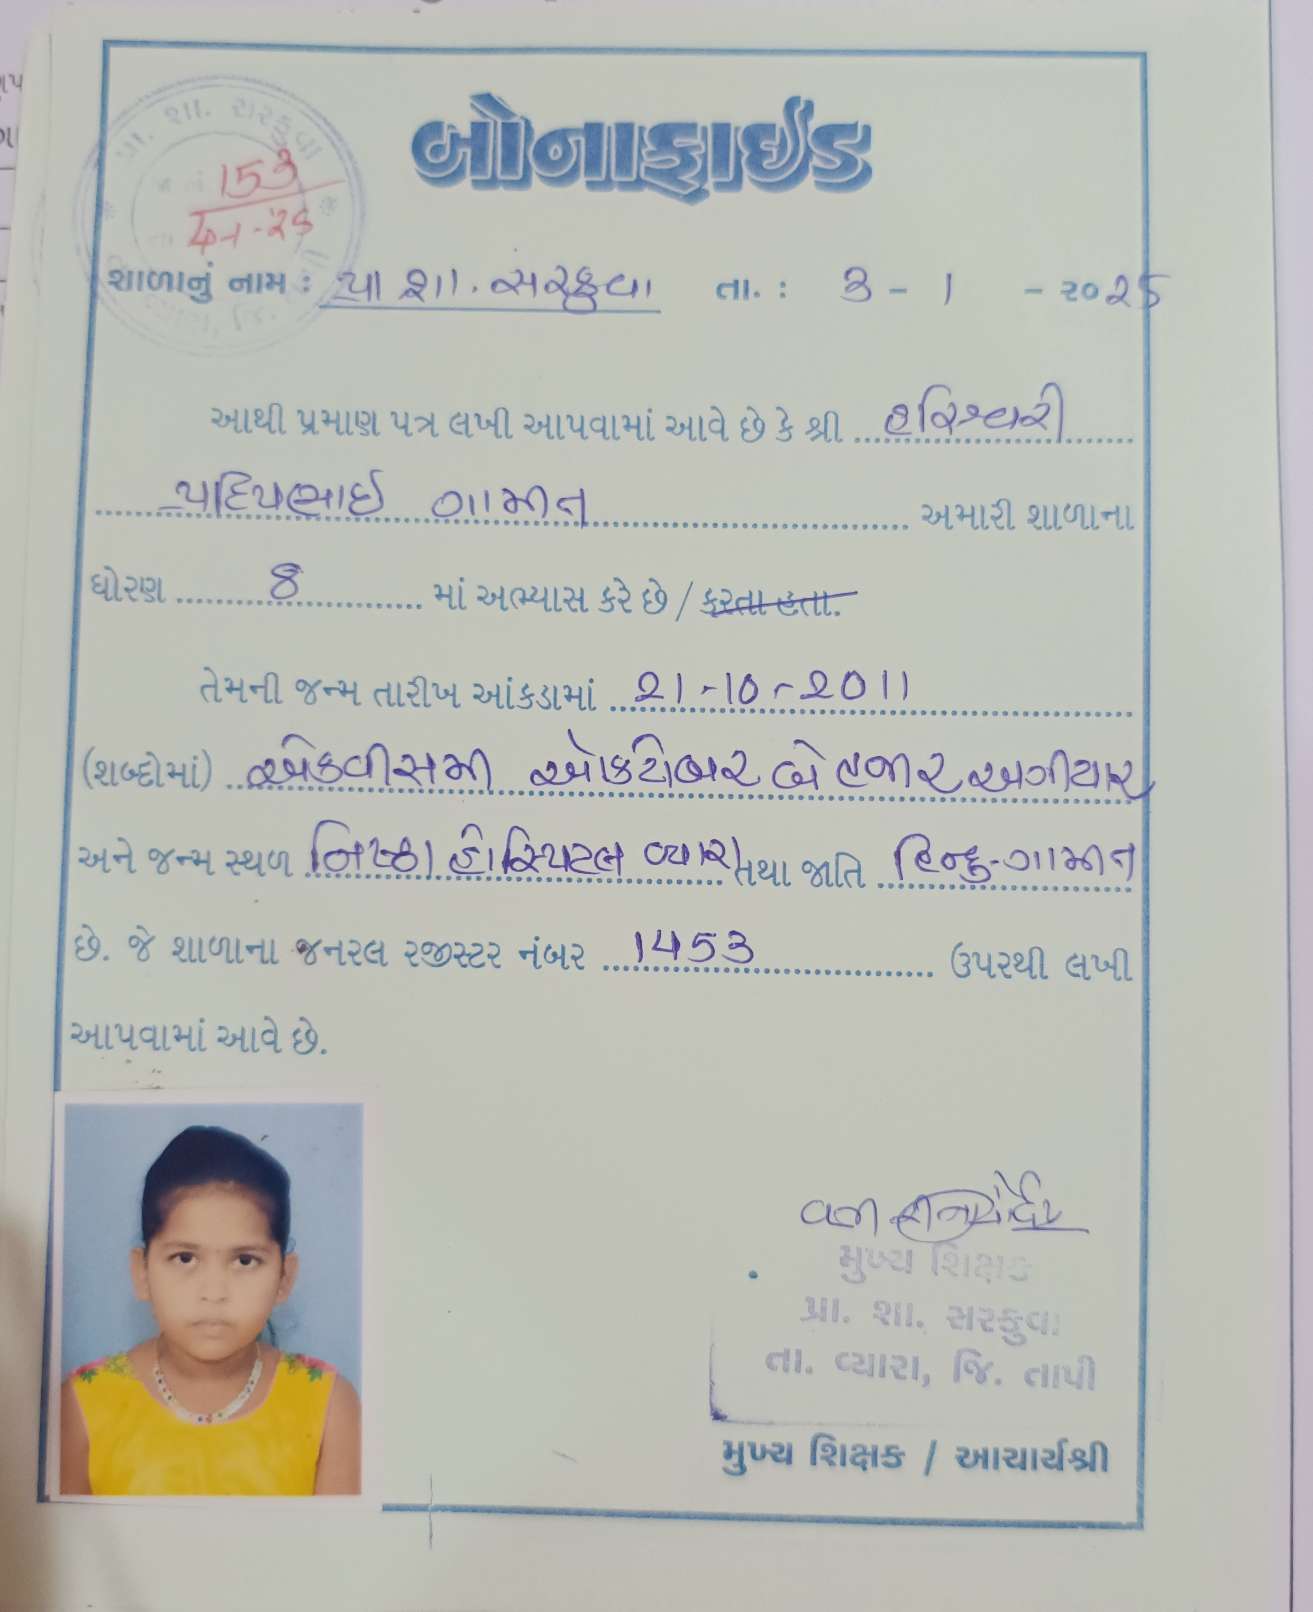 બોનાફાઈડ
પ્રા. શા. સરકુવા
153
4-1-25
શાળાનું નામ : પ્રા શા. સરકુવા તા. : 3 - 1 - ૨૦25
આથી પ્રમાણ પત્ર લખી આપવામાં આવે છે કે શ્રી હરિશ્વરી
પ્રદિપભાઈ ગામીત અમારી શાળાના
ધોરણ 8 માં અભ્યાસ કરે છે / કરતા હતા.
તેમની જન્મ તારીખ આંકડામાં 21-10-2011
(શબ્દોમાં) એકવીસમી ઓકટોબર બે હજાર અગીયાર
અને જન્મ સ્થળ નિષ્ઠા હોસ્પિટલ વ્યારા તથા જાતિ હિન્દુ-ગામીત
છે. જે શાળાના જનરલ રજીસ્ટર નંબર 1453 ઉપરથી લખી
આપવામાં આવે છે.
મુખ્ય શિક્ષક
પ્રા. શા. સરકુવા
તા. વ્યારા, જિ. તાપી
મુખ્ય શિક્ષક / આચાર્યશ્રી